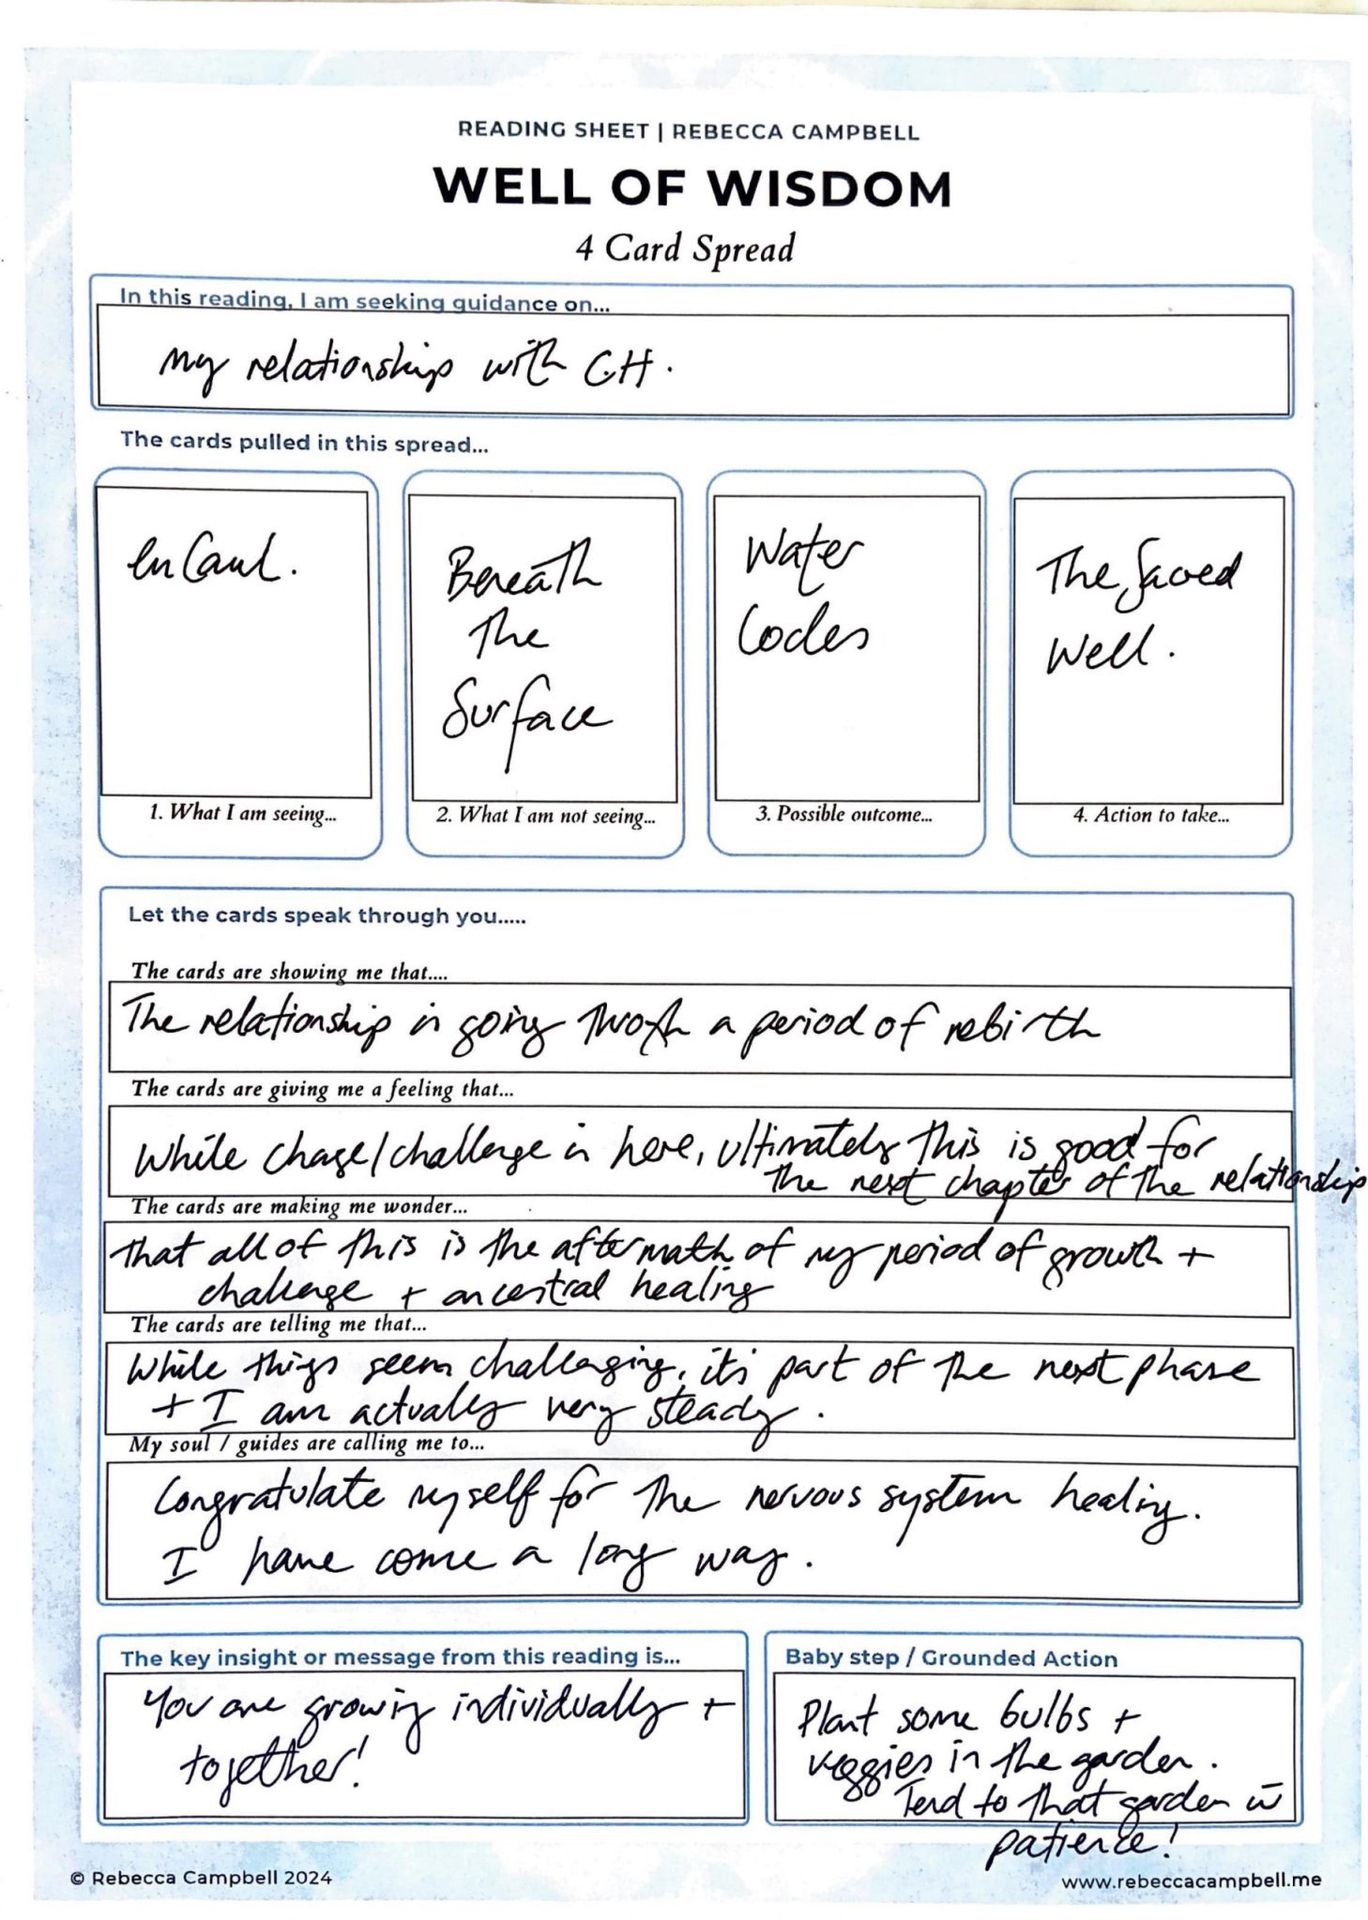 READING SHEET | REBECCA CAMPBELL
WELL OF WISDOM
4 Card Spread
In this reading, I am seeking guidance on...
my relationship with CH.
The cards pulled in this spread...
En Caul.
Beneath
The
Surface
Water
Codes
The Sacred
Well.
1. What I am seeing...
2. What I am not seeing...
3. Possible outcome...
4. Action to take...
Let the cards speak through you.....
The cards are showing me that....
The relationship is going through a period of rebirth
The cards are giving me a feeling that...
While change/challenge is here, ultimately this is good for
the next chapter of the relationship
The cards are making me wonder...
that all of this is the aftermath of my period of growth +
challenge + ancestral healing
The cards are telling me that...
While things seem challenging, it's part of the next phase
+ I am actually very steady.
My soul / guides are calling me to...
Congratulate myself for the nervous system healing.
I have come a long way.
The key insight or message from this reading is...
You are growing individually +
together!
Baby step / Grounded Action
Plant some bulbs +
veggies in the garden.
Tend to that garden w̄
patience!
© Rebecca Campbell 2024
www.rebeccacampbell.me